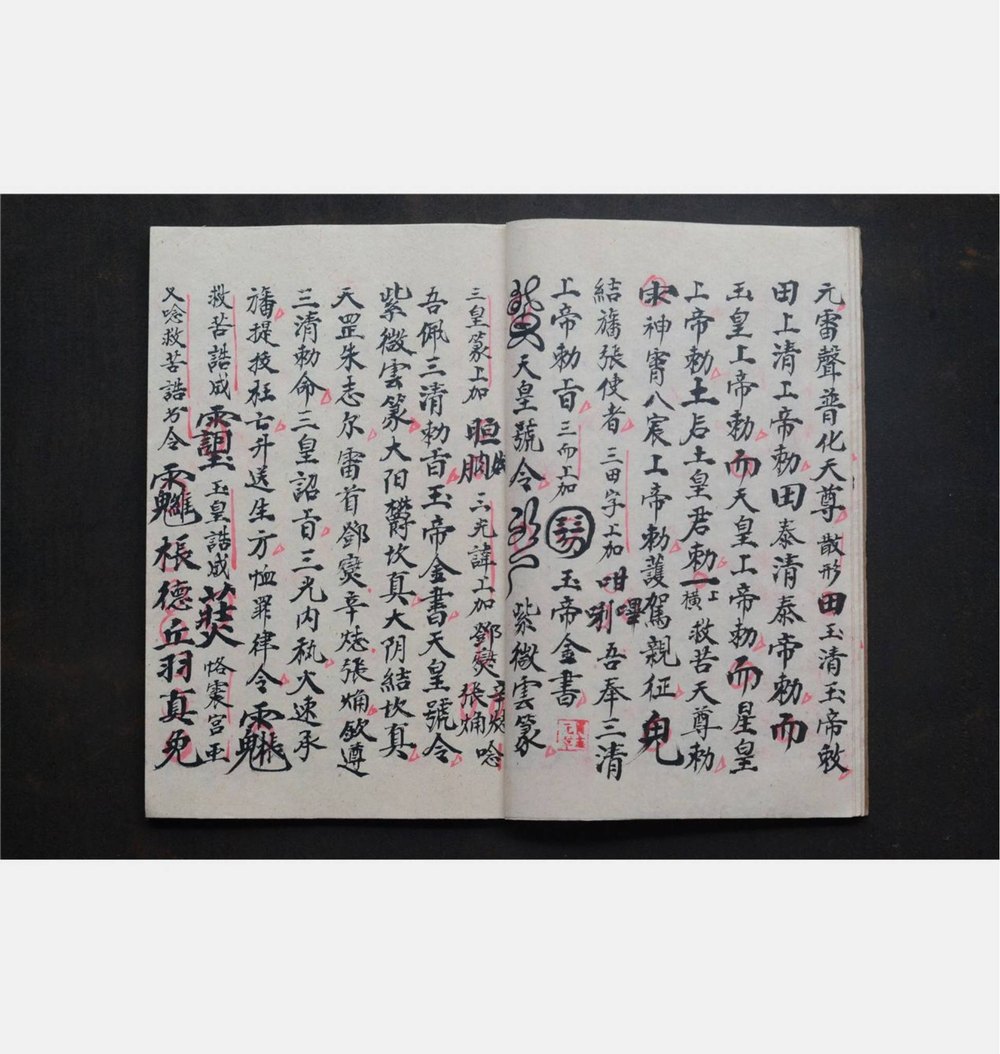 元雷聲普化天尊散形田玉清玉帝敕
田上清上帝勅田泰清泰帝勅而
玉皇上帝勅而天皇上帝勅而星皇
上帝勅土后土皇君勅一上橫救苦天尊勅
神霄八宸上帝勅護駕親征
結旛張使者三田字上加咁唎嗶吾奉三清
上帝勅旨三而上加玉帝金書
天皇號令紫微雲篆
三皇篆上加三光諱上加鄧燮辛張唸
吾佩三清勅旨玉帝金書天皇號令
紫微雲篆大阳欝坎真大阴結坎真
天罡朱志尔雷首鄧燮辛張欽遵
三清勅命三皇詔旨三光内火速承
旛提投枉亡斗送生方恤罪律令
救苦誥咸玉皇誥咸震宮
又唸救苦誥令德丘羽真